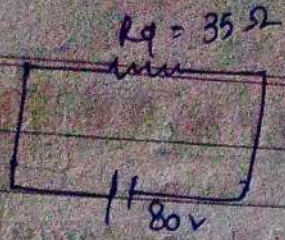 Rq = 35 Ω
80 v